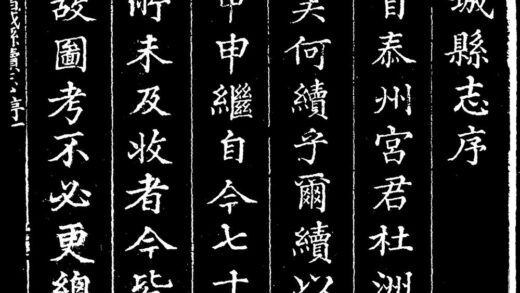 城縣志序
自泰州宮君杜洲
矣何續乎爾續以
甲申繼自今七十
所未及收者今皆
故圖考不必更總
城縣續志序一